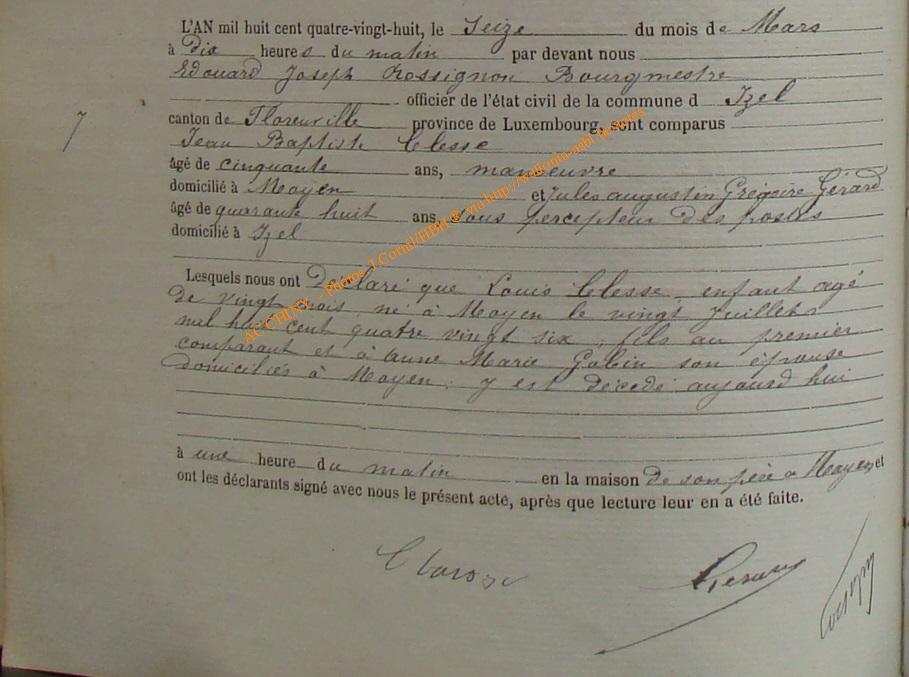 L'AN mil huit cent quatre-vingt-huit, le Seize du mois de Mars
à Dix heures du matin par devant nous
Edouard Joseph Rossignon Bourgmestre
officier de l'état civil de la commune d Izel
7 canton de Florenville province de Luxembourg, sont comparus
Jean Baptiste Clesse
âgé de cinquante ans, manoeuvre
domicilié à Moyen et Jules augustin Grégoire Gérard
âgé de quarante huit ans, sous percepteur des postes
domicilié à Izel
Lesquels nous ont Déclaré que Louis Clesse, enfant agé
de vingt mois, né à Moyen le vingt Juillet
mil huit cent quatre vingt six, fils au premier
comparant et à Anne Marie Gobin son épouse
domiciliés à Moyen, y est décédé aujourd hui
à une heure du matin en la maison de son père a Moyen, et
ont les déclarants signé avec nous le présent acte, après que lecture leur en a été faite.
Gerard
ACCHINX - Photos J.Cornil/HBH @ via http://wallonia-asbl.be